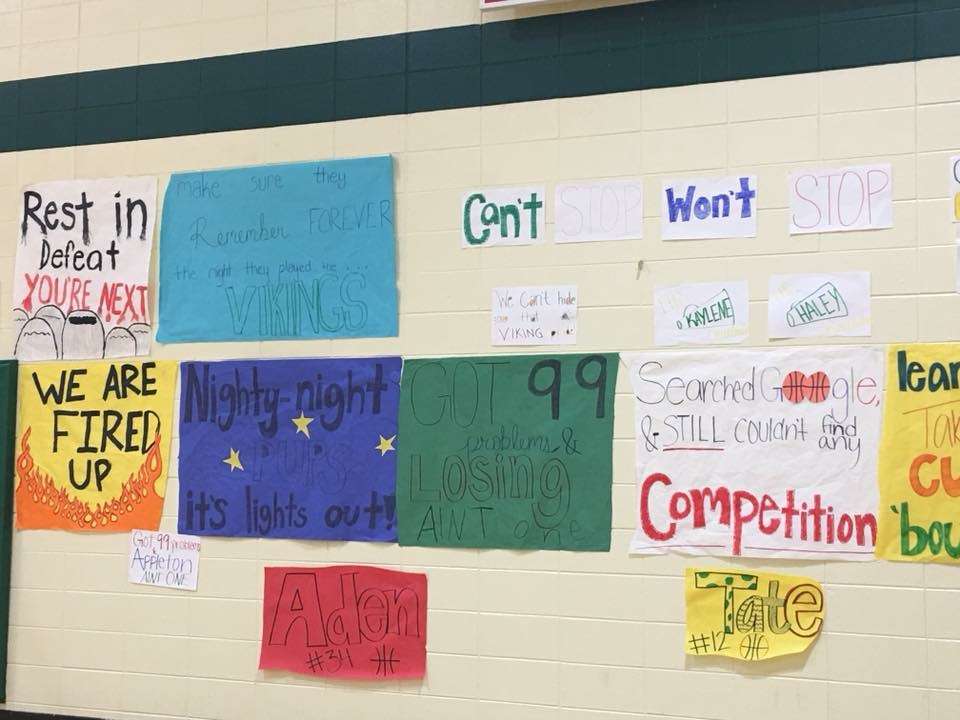 Rest in
Defeat
YOU'RE NEXT
make sure they
Remember FOREVER
the night they played the ....
VIKINGS
Can't
STOP
Won't
STOP
We Can't hide
that
VIKING
KAYLENE
HALEY
WE ARE
FIRED
UP
Nighty-night
it's lights out!
GOT 99
problems &
Losing
AIN'T one
Searched Google,
& STILL couldn't find
any
Competition
lear
Tak
CU
'bou
Got 99 problems
Appleton
AINT ONE
Aden
#34
Tate
#12